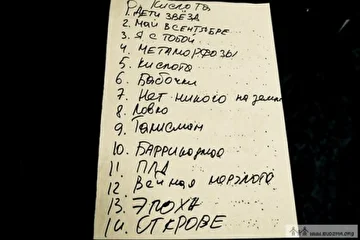 Кислоты
1. Дети звёзд
2. Май в сентябре
3. Я с тобой
4. Метаморфозы
5. Кислота
6. Бабочки
7. Нет никого на земле
8. Ловко
9. Талисман
10. Баррикадная
11. ПЛА
12. Вечная мерзлота
13. Эпоха
14. Открове